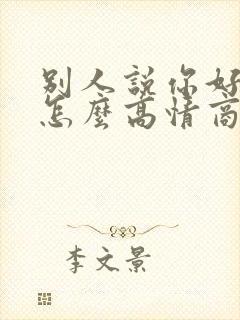 別人說你好
怎麼高情商
李文景